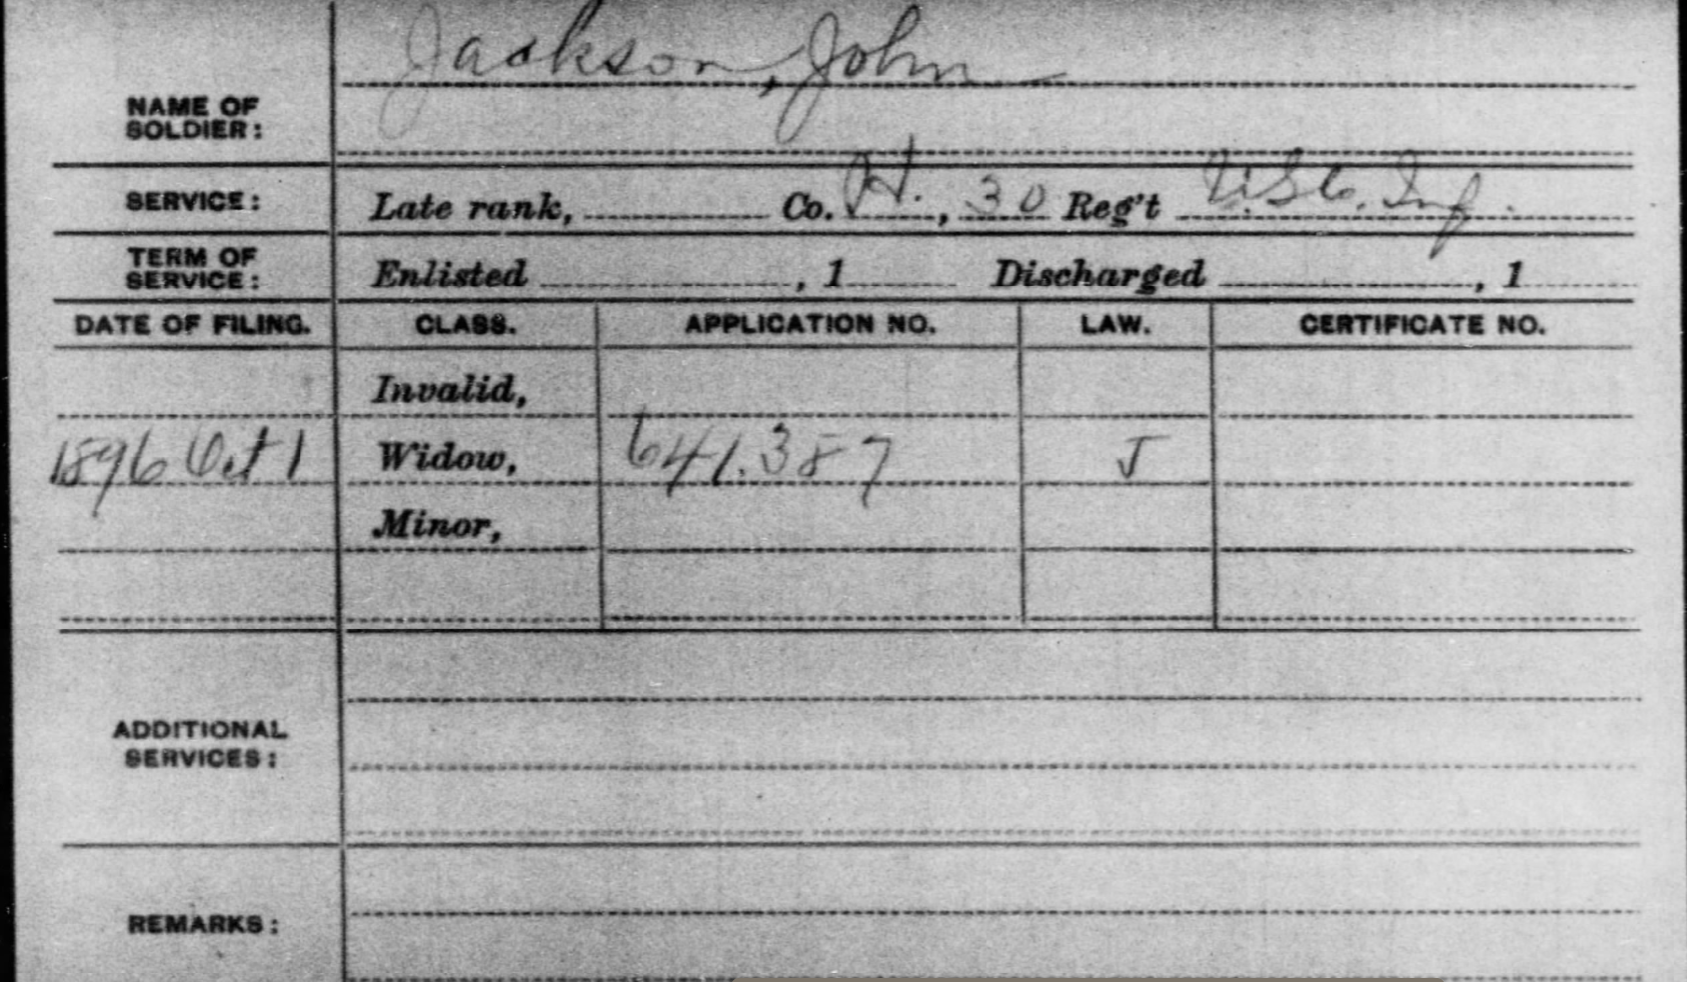 Jackson, John
NAME OF
SOLDIER:
SERVICE: Late rank, Co. H., 30 Reg't U.S.C. Inf.
TERM OF
SERVICE: Enlisted , 1 Discharged , 1
DATE OF FILING. CLASS. APPLICATION NO. LAW. CERTIFICATE NO.
Invalid,
1896 Oct 1 Widow, 641.387 J
Minor,
ADDITIONAL
SERVICES:
REMARKS: